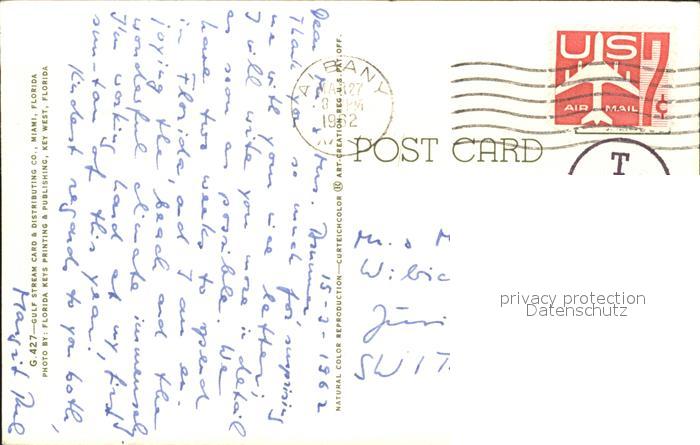 15-3-1962
Dear Mr. & Mrs.
Thank you so much for surprising
me with your nice letter;
I will write you more in detail
as soon as possible. We
have two weeks to spend
in Florida, and I am en-
joying the beach and the
wonderful climate immensely
I'm working hard at my first
sun-tan of this year!
Kindest regards to you both,
Margrit
G.427—GULF STREAM CARD & DISTRIBUTING CO., MIAMI, FLORIDA
PHOTO BY: FLORIDA KEYS PRINTING & PUBLISHING, KEY WEST, FLORIDA
NATURAL COLOR REPRODUCTION—CURTEICHCOLOR ® ART-CREATION REG. U.S. PAT. OFF.
ALBANY
MAR 27
8 PM
1962
US 7¢
AIR MAIL
T
POST CARD
Mr. & M
Wi
SWIT
privacy protection
Datenschutz